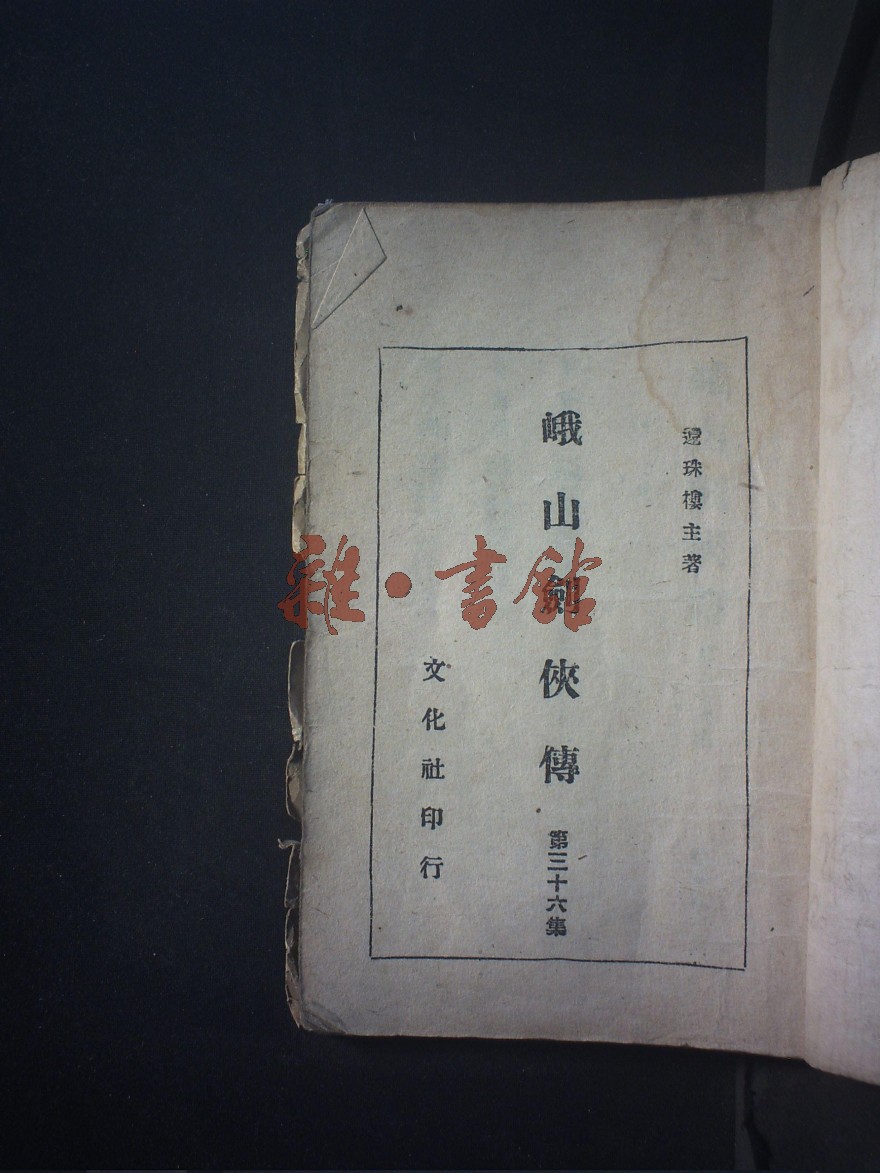 還珠樓主著
峨山劍俠傳 第三十六集
文化社印行
雜·書館